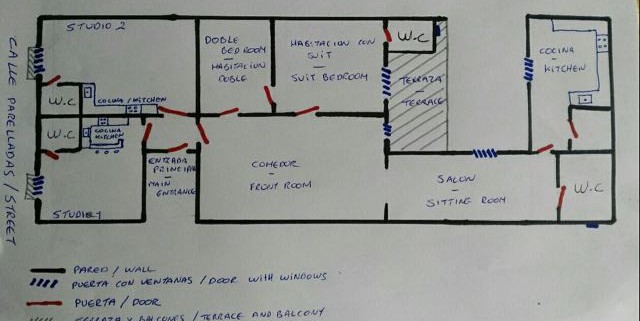 STUDIO 2
CALLE PARELLADAS / STREET
W.C
COCINA / KITCHEN
W.C
COCINA
KITCHEN
STUDIO 1
ENTRADA
PRINCIPAL
MAIN
ENTRANCE
DOBLE
BEDROOM
HABITACION
DOBLE
HABITACION CON
SUIT
SUIT BEDROOM
W.C
TERRAZA
TERRACE
COCINA
KITCHEN
COMEDOR
FRONT ROOM
SALON
SITTING ROOM
W.C
PARED / WALL
PUERTA CON VENTANAS / DOOR WITH WINDOWS
PUERTA / DOOR
TERRAZA Y BALCONES / TERRACE AND BALCONY